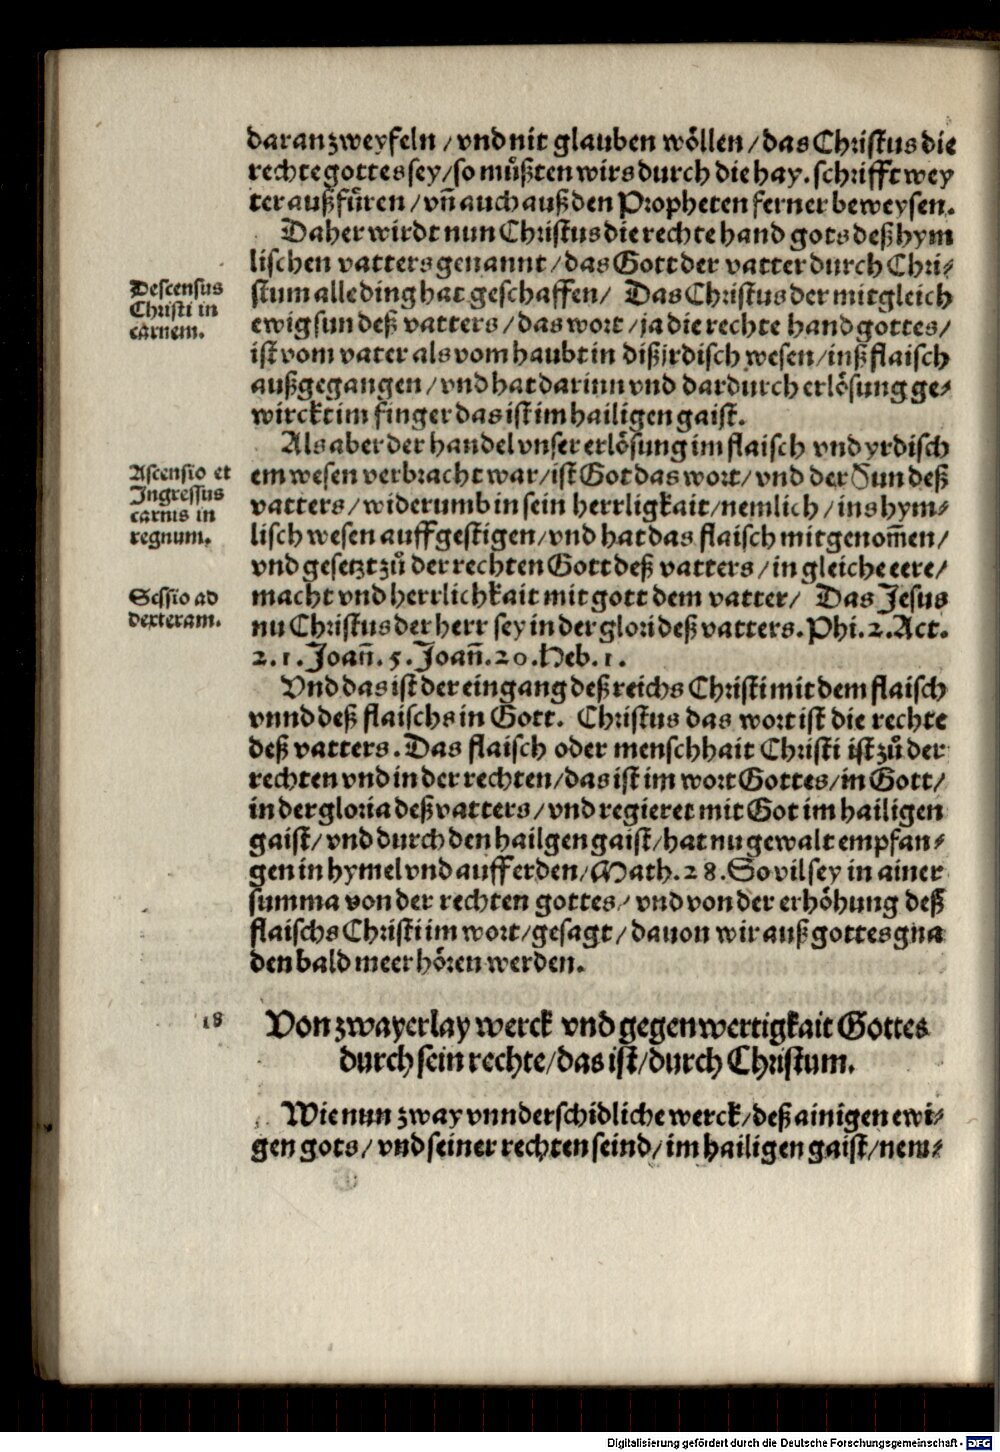 daran zweyfeln / vnd nit glauben wöllen / das Christus die
rechte gottes sey / so můßten wirs durch die hay. schrifft wey
ter außfůren / vñ auch auß den Propheten ferner beweysen.
Daher wirdt nun Christus die rechte hand gots deß hym
lischen vatters genannt / das Gott der vatter durch Chri⸗
Descensus
Christi in
carnem.
stum alle ding hat geschaffen / Das Christus der mitgleich
ewig sun deß vatters / das wort / ja die rechte hand gottes /
ist vom vater als vom haubt in diß jrdisch wesen / inß flaisch
außgegangen / vnd hat darinn vnd dardurch erlösung ge⸗
wirckt im finger das ist im hailigen gaist.
Als aber der handel vnser erlösung im flaisch vnd yrdisch
Ascensio et
Ingressus
carnis in
regnum.
em wesen verbracht war / ist Got das wort / vnd der Sun deß
vatters / widerumb in sein herrligkait / nemlich / ins hym⸗
lisch wesen auffgestigen / vnd hat das flaisch mitgenom̃en /
vnd gesetzt zů der rechten Gott deß vatters / in gleiche eere /
Sessio ad
dexteram.
macht vnd herrlichkait mit gott dem vatter / Das Jesus
nu Christus der herr sey in der glori deß vatters. Phi. 2. Act.
2. 1. Joañ. 5. Joañ. 20. Heb. 1.
Vnd das ist der eingang deß reichs Christi mit dem flaisch
vnnd deß flaischs in Gott. Christus das wort ist die rechte
deß vatters. Das flaisch oder menschhait Christi ist zů der
rechten vnd in der rechten / das ist im wort Gottes / in Gott /
in der gloria deß vatters / vnd regieret mit Got im hailigen
gaist / vnd durch den hailgen gaist / hat nu gewalt empfan⸗
gen in hymel vnd auff erden / Math. 28. So vil sey in ainer
summa von der rechten gottes / vnd von der erhöhung deß
flaischs Christi im wort / gesagt / dauon wir auß gottes gna
den bald meer hören werden.
18
Von zwayerlay werck vnd gegenwertigkait Gottes
durch sein rechte / das ist / durch Christum.
Wie nun zway vnnderschidliche werck / deß ainigen ewi⸗
gen gots / vnd seiner rechten seind / im hailigen gaist / nem⸗
Digitalisierung gefördert durch die Deutsche Forschungsgemeinschaft - DFG